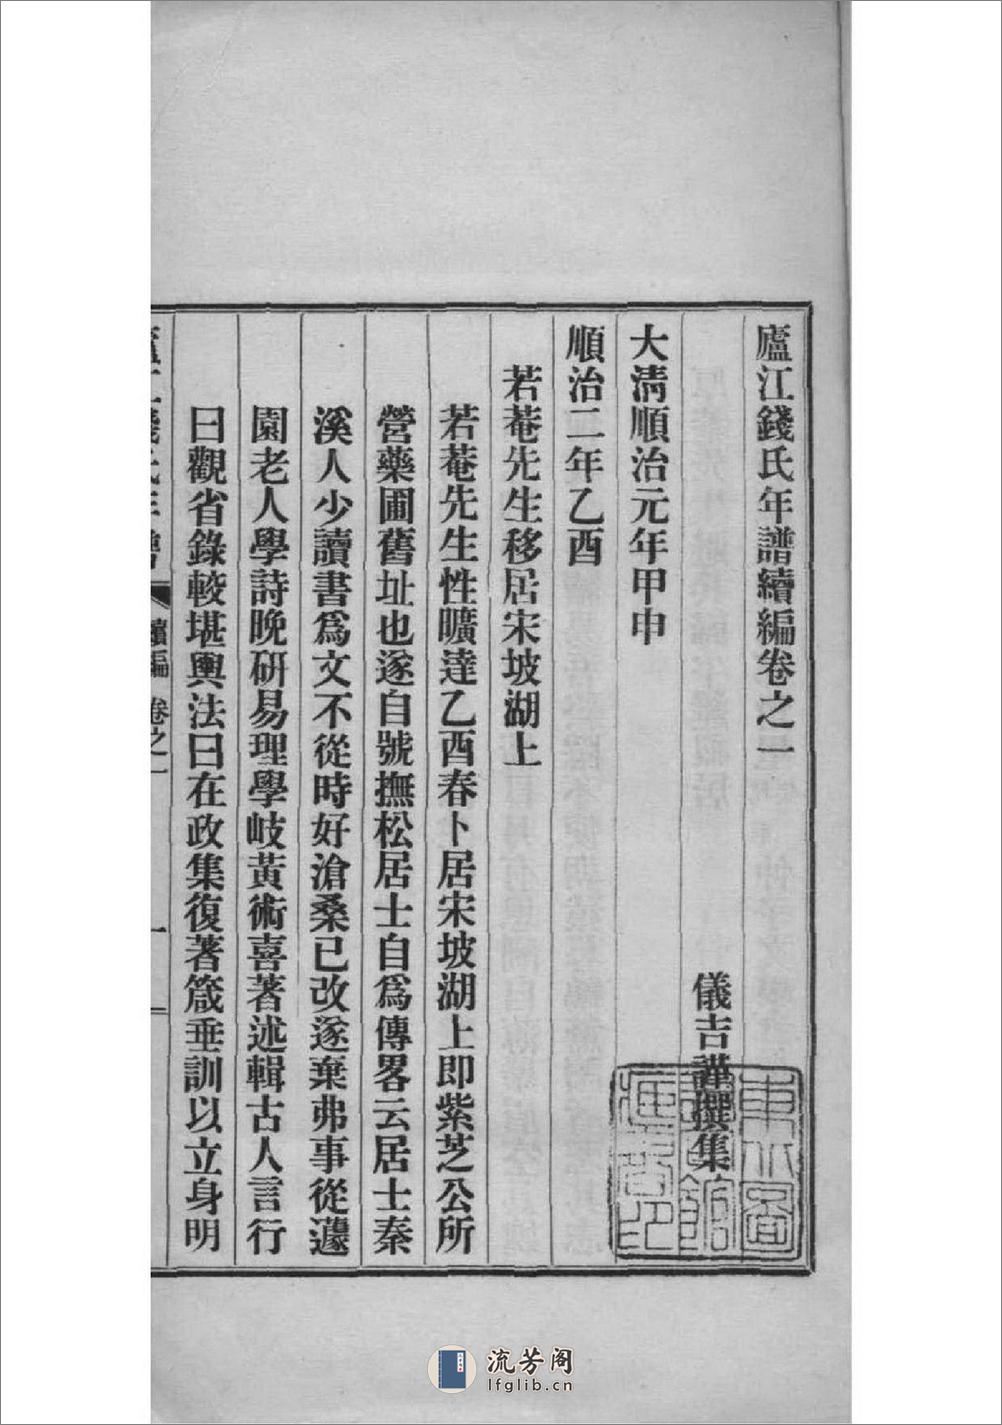 廬江錢氏年譜續編卷之一
儀吉謹撰集
大淸順治元年甲申
順治二年乙酉
若菴先生移居宋坡湖上
若菴先生性曠達乙酉春卜居宋坡湖上即紫芝公所
營藥圃舊址也遂自號撫松居士自爲傳畧云居士秦
溪人少讀書爲文不從時好滄桑已改遂棄弗事從遽
園老人學詩晩研易理學岐黃術喜著述輯古人言行
曰觀省錄較堪輿法曰在政集復著箴垂訓以立身明
續編 卷之一
一
流芳阁
lfglib.cn